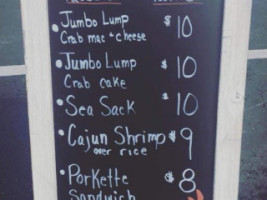 • Jumbo Lump $10
Crab mac + cheese
• Jumbo Lump $10
Crab cake
• Sea Sack $10
• Cajun Shrimp $9
over rice
• Porkette $8
Sandwich